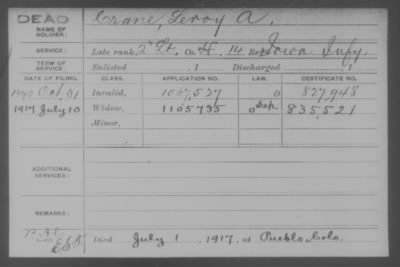 DEAD
NAME OF SOLDIER:
Crane, Leroy A.
SERVICE:
Late rank, 2" Lt., Co. H, 14 Reg't Iowa Infy.
TERM OF SERVICE:
Enlisted , 1 Discharged , 1
DATE OF FILING. CLASS. APPLICATION NO. LAW. CERTIFICATE NO.
Oct. 31 Invalid, 1067,527 0 827,948
1917 July 10 Widow, 1105735 835,521
Minor,
ADDITIONAL SERVICES:
REMARKS:
Died July 1, 1917, at Pueblo, Colo.